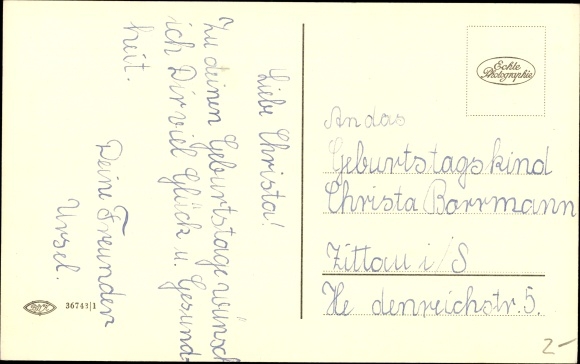 Liebe Christa!
Zu deinen Geburtstage wünsch
ich Dir viel Glück u. Gesund-
heit.
Deine Freunden
Ursel.
Echte
Photographie
An das
Geburtstagskind
Christa Borrmann
Zittau i/S
He denreichstr. 5.
36743|1
2-